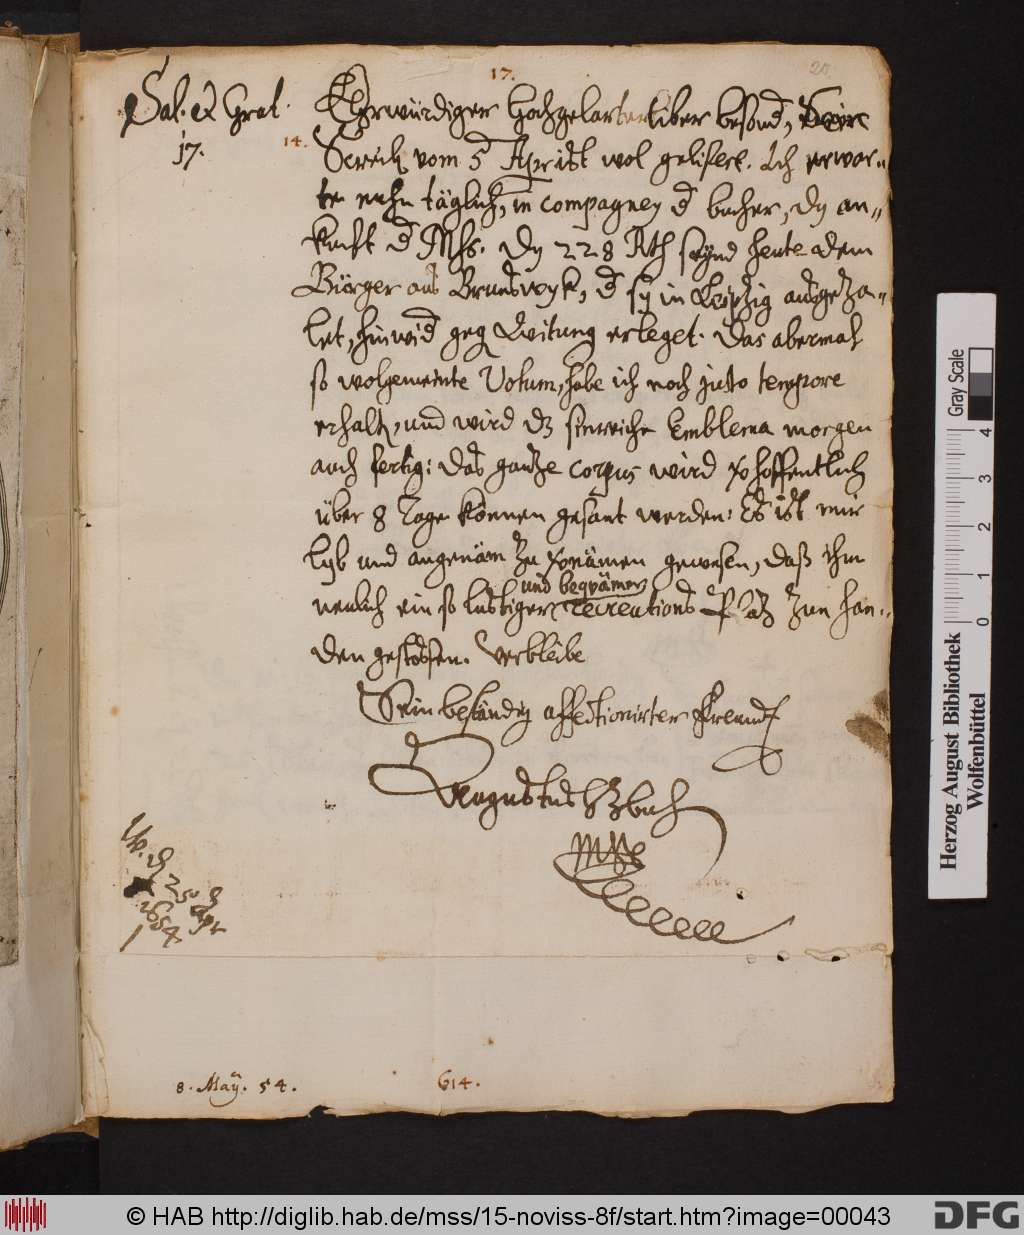 17.
20
Sal. et Grat.
17.
14.
Ehrwürdiger Hochgelarter liber besond,
Screib vom 5 April ist wol gelifert. Ich erwar=
te nuhn täglich, in compagney d bucher, dy an=
kunft d Mss. Dy 228 Rth seynd heute dem
Bürger aus Brunswyk, d sy in Leipzig ausgeza=
let, hinwid geg Quitung erleget. Das abermal
so wolgemeinte Votum, habe ich noch justo tempore
erhalt, und wird dz sinreiche Emblema morgen
auch fertig: das gantze corpus wird hoffentlich
über 8 Tage können gesant werden: Es ist mir
lyb und angenäm zu vernämen gewesen, daß ihm
und beqvämer
neulich ein so lustiger recreations Platz zun han=
den gestossen. Verbleibe
Sein beständig affectionirter Freund
Augustus HZBuL
mppe
W. d
1654
8. May. 54.
614.
Gray Scale
0 1 2 3 4
Herzog August Bibliothek
Wolfenbüttel
© HAB http://diglib.hab.de/mss/15-noviss-8f/start.htm?image=00043
DFG